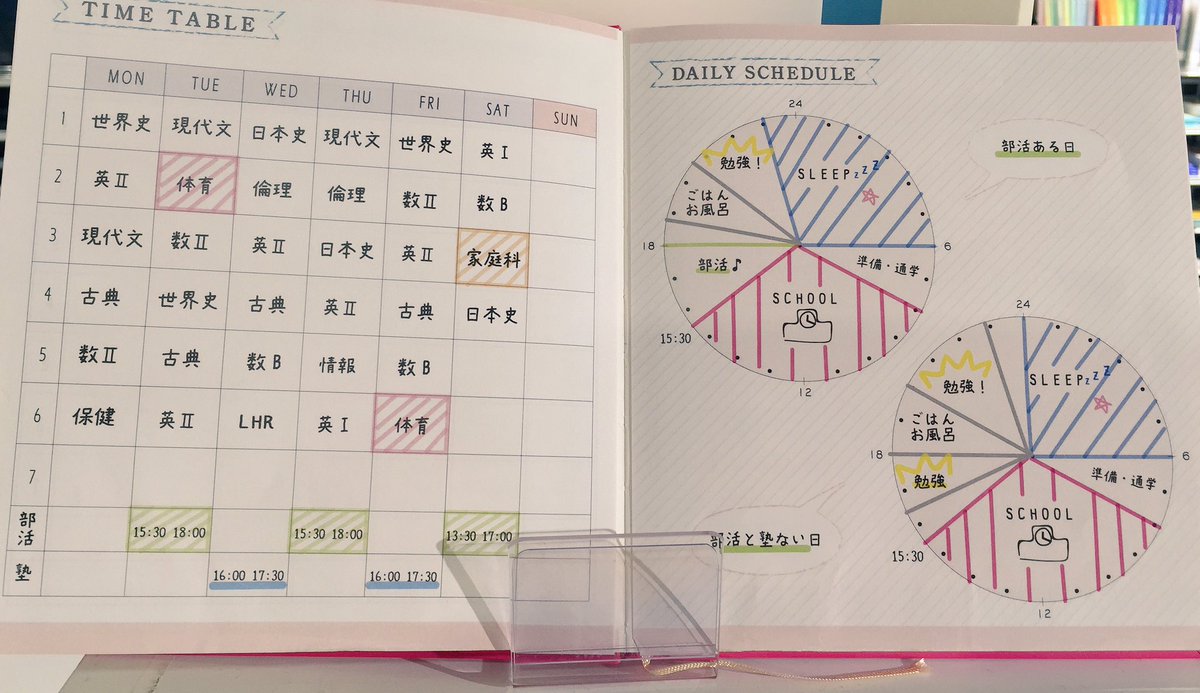 TIME TABLE
MON TUE WED THU FRI SAT SUN
1 世界史 現代文 日本史 現代文 世界史 英Ⅰ
2 英Ⅱ 体育 倫理 倫理 数Ⅱ 数B
3 現代文 数Ⅱ 英Ⅱ 日本史 英Ⅱ 家庭科
4 古典 世界史 古典 英Ⅱ 古典 日本史
5 数Ⅱ 古典 数B 情報 数B
6 保健 英Ⅱ LHR 英Ⅰ 体育
7
部活 15:30 18:00 15:30 18:00 13:30 17:00
塾 16:00 17:30 16:00 17:30
DAILY SCHEDULE
部活ある日
24
勉強!
SLEEPzzZ
ごはん
お風呂
18
6
部活♪
準備・通学
SCHOOL
15:30
12
部活と塾ない日
24
勉強!
SLEEPzzZ
ごはん
お風呂
18
6
勉強
準備・通学
SCHOOL
15:30
12